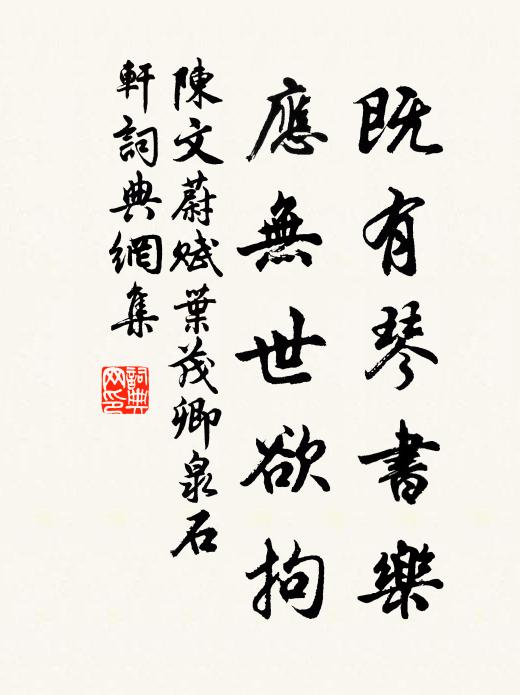 既有琴書樂
應無世欲拘
陳文蔚賦葉茂卿泉石
軒詞典網集
詞典網印